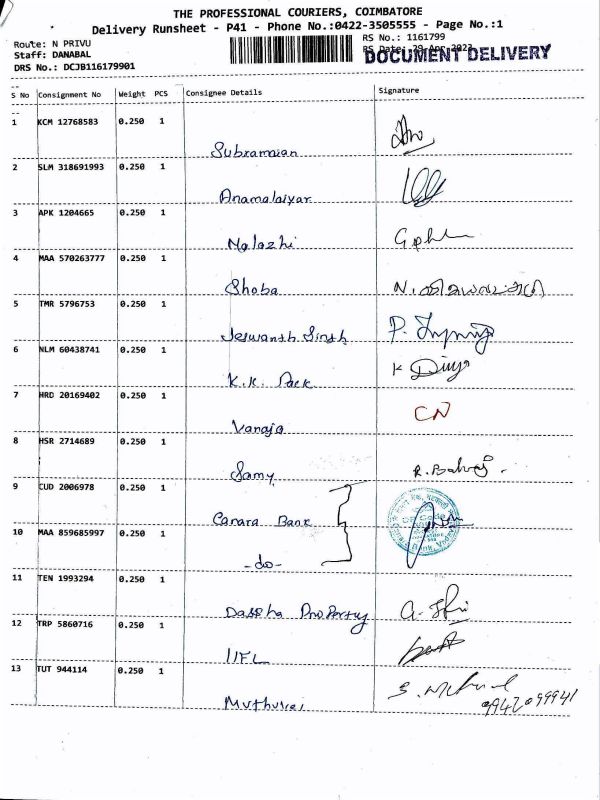 THE PROFESSIONAL COURIERS, COIMBATORE
Delivery Runsheet - P41 - Phone No.:0422-3505555 - Page No.:1
Route: N PRIVU
RS No.: 1161799
Staff: DANABAL
DOCUMENT DELIVERY
DRS No.: DCJB116179901
S No Consignment No Weight PCS Consignee Details Signature
1 KCM 12768583 0.250 1
Subramaian
2 SLM 318691993 0.250 1
Anamalaiyar
3 APK 1204665 0.250 1
Malazhi
4 MAA 570263777 0.250 1
Shoba
5 TMR 5796753 0.250 1
Jeswanth Singh
6 NLM 60438741 0.250 1
K.K. Pack
K Divya
7 HRD 20169402 0.250 1
CN
Vanaja
8 HSR 2714689 0.250 1
Samy
9 CUD 2006978 0.250 1
Canara Bank
10 MAA 859685997 0.250 1
-do-
11 TEN 1993294 0.250 1
12 TRP 5860716 0.250 1
IIFL
13 TUT 944114 0.250 1